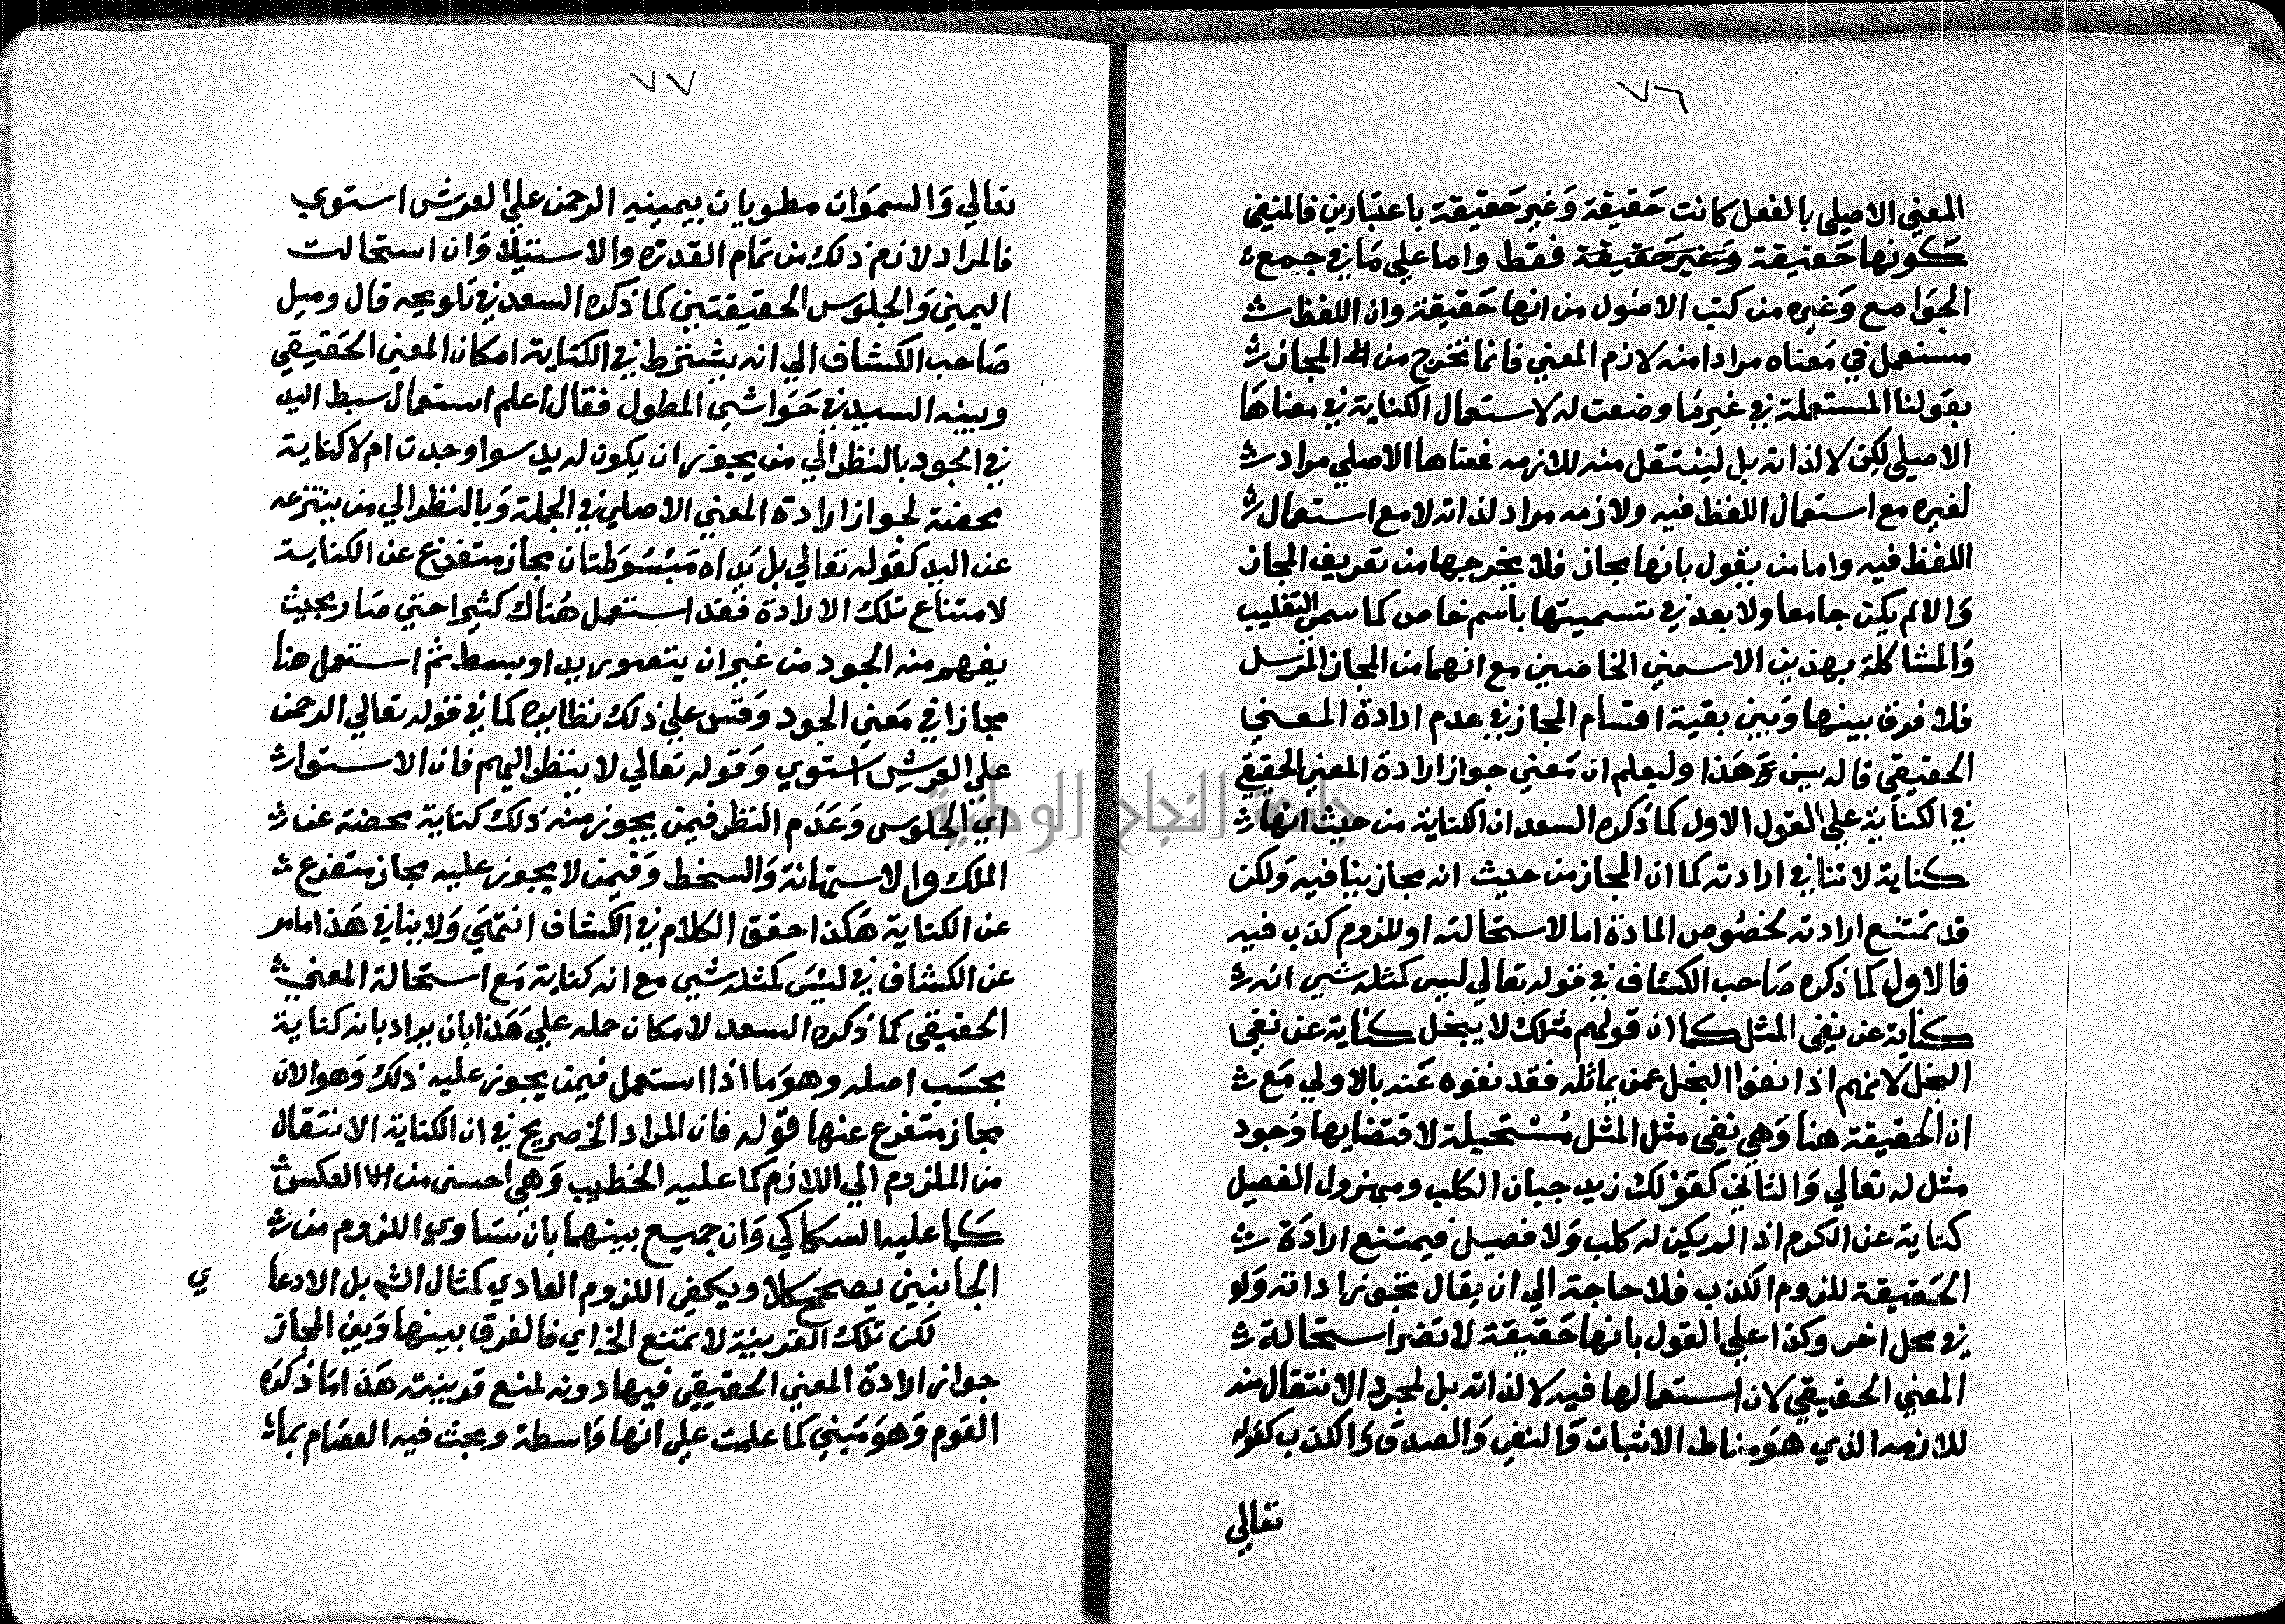 ٧٦
المعني الاصلي بالفعل كانت حَقيقة وَغير حَقيقة باعتبارين فالمنفي
كونها حَقيقة وَغير حَقيقة فقط واما علي مَا في جمع
الجوَامع وَغيره من كتب الاصُول من انها حَقيقة وان اللفظ
مستعمل في مَعناه مرادا منه لازم المعني فانما تخرج من المجاز
بقولنا المستعملة في غير مَا وضعت له لاستعمال الكناية في معناهَا
الاصلي لكن لا لذاته بل لينتقل منه للازمه فمعناها الاصلي مراد
لغيره مع استعمال اللفظ فيه ولازمه مراد لذاته لا مع استعمال
اللفظ فيه واما من يقول بانها مجاز فلا يخرجها من تعريف المجاز
وَالا لم يكن جامعا ولا بعد في تسميتها باسم خاص كما سمي التغليب
وَالمشاكلة بهذين الاسمين الخاصين مع انهما من المجاز المرسل
فلا فرق بينها وَبين بقية اقسام المجاز في عدم ارادة المعني
الحقيقي قاله يس هَذا وليعلم ان مَعني جواز ارادة المعني الحقيقي
في الكناية علي القول الاول كما ذكره السعد ان الكناية من حيث انها
كناية لا تنافي ارادته كما ان المجاز من حيث انه مجاز ينافيه وَلكن
قد تمتنع ارادته لخصُوص المادة اما لاستحالته او للزوم كذب فيه
فالاول كما ذكره صَاحب الكشاف في قوله تعالي ليس كمثله شي انه
كناية عن نفي المثل كما ان قولهم مثلك لا يبخل كناية عن نفي
البخل لانهم اذا نفوا البخل عمن يماثله فقد نفوه عَنه بالاولي مَع
ان الحقيقة هنا وَهي نفي مثل المثل مُسْتحيلة لاقتضايها وُجود
مثل له تعالي وَالثاني كقوْلك زيد جبان الكلب ومهزول الفصيل
كناية عن الكرم اذا لم يكن له كلب وَلا فصيل فيمتنع ارادَة
الحَقيقة للزوم الكذب فلا حاجة الي ان يقال تجوز ارادته وَلو
في محل اخر وكذا علي القول بانها حَقيقة لا تضر استحالة
المعني الحقيقي لان استعمالها فيه لا لذاته بل لمجرد الانتقال منه
للازمه الذي هوَ مناط الاثبات وَالنفي وَالصدق وَالكذب كقوله
تعالي
٧٧
تعالي وَالسموَات مطويات بيمينه الرحمن علي العرش استوي
فالمراد لازم ذلك من تمام القدرة والاستيلا وَان استحالت
اليمين وَالجلوس الحقيقيين كما ذكره السعد في تلويحه قال وميل
صَاحب الكشاف الي انه يشترط في الكناية امكان المعني الحَقيقي
وبينه السيد في حَوَاشي المطول فقال اعلم استعمال بسط اليد
في الجود بالنظر الي من يجوز ان يكون له يد سوا وجدت ام لا كناية
محضة لجواز ارادة المعني الاصلي في الجملة وَبالنظر الي من ينتزعه
عن اليد كقوله تعالي بل يَداه مَبْسُوطتان مجاز متفرع عن الكناية
لامتناع تلك الارادة فقد استعمل هُناك كثيرا حتي صَار بحيث
يفهم منه الجود من غير ان يتصور يد او بسط ثم استعمل هنا
مجازا في مَعني الجود وَقس علي ذلك نظايره كما في قوله تعالي الرحمن
علي العرش استوي وَقوله تعالي لا ينظر اليهم فان الاستوا
اي الجلوس وَعَدَم النظر فيمن يجوز منه ذلك كناية محضة عن
الملك والاستهانة وَالسخط وَفيمن لا يجوز عليه مجاز متفرع
عن الكناية هَكذا حقق الكلام في الكشاف انتهَي وَلا ينافي هَذا ما مر
عن الكشاف في ليْسَ كمثله شي مع انه كناية مَع استحالة المعني
الحقيقي كما ذكره السعد لامكان حمله علي هَذا بان يراد بانه كناية
بحسَب اصله وهوَ ما اذا استعمل فيمن يجوز عليه ذلك وَهو الان
مجاز متفرع عنها قوله فان المراد الخ صريح في ان الكناية الانتقال
من الملزوم الي اللازم كما عليه الخطيب وَهي احسن من العكس
كما عليه السكاكي وَان جميع بينهما بان تساوي اللزوم من
الجانبين يصحح كلا ويكفي اللزوم العادي كمثال الش بل الادعا
ي
لكن تلك القرينة لا تمتنع الخ اي فالفرق بينها وَبين المجاز
جواز ارادة المعني الحقيقي فيها دونه لمنع قرينته هَذا مَا ذكره
القوم وَهوَ مَبني كما علمت علي انها وَاسطة وبحث فيه العصَام بما